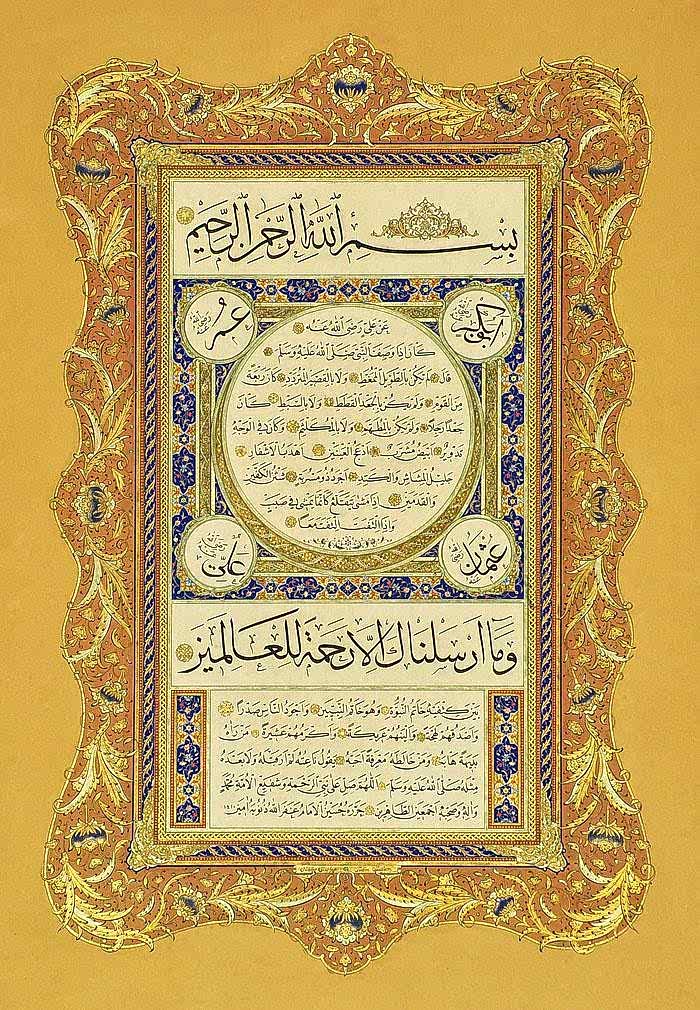 بسم الله الرحمن الرحيم
ابو بكر رضي الله عنه
عمر رضي الله عنه
عن علي رضي الله عنه
كان اذا وصف النبي صلى الله عليه وسلم
قال لم يكن بالطويل الممغط ولا بالقصير المتردد كان ربعة
من القوم ولم يكن بالجعد القطط ولا بالسبط كان
جعدا رجلا ولم يكن بالمطهم ولا بالمكلثم وكان في الوجه
تدوير ابيض مشرب ادعج العينين اهدب الاشفار
جليل المشاش والكتد اجرد ذو مسربة شثن الكفين
والقدمين اذا مشى يتقلع كانما يمشي في صبب
واذا التفت التفت معا
عثمان رضي الله عنه
علي رضي الله عنه
وما ارسلناك الا رحمة للعالمين
بين كتفيه خاتم النبوة وهو خاتم النبيين واجود الناس صدرا
واصدقهم لهجة والينهم عريكة واكرمهم عشيرة من رآه
بديهة هابه ومن خالطه معرفة احبه يقول ناعته لم ار قبله ولا بعده
مثله صلى الله عليه وسلم اللهم صل على نبي الرحمة وشفيع الامة محمد
وآله وصحبه اجمعين الطاهرين حرره حسين الامام غفر الله ذنوبه آمين